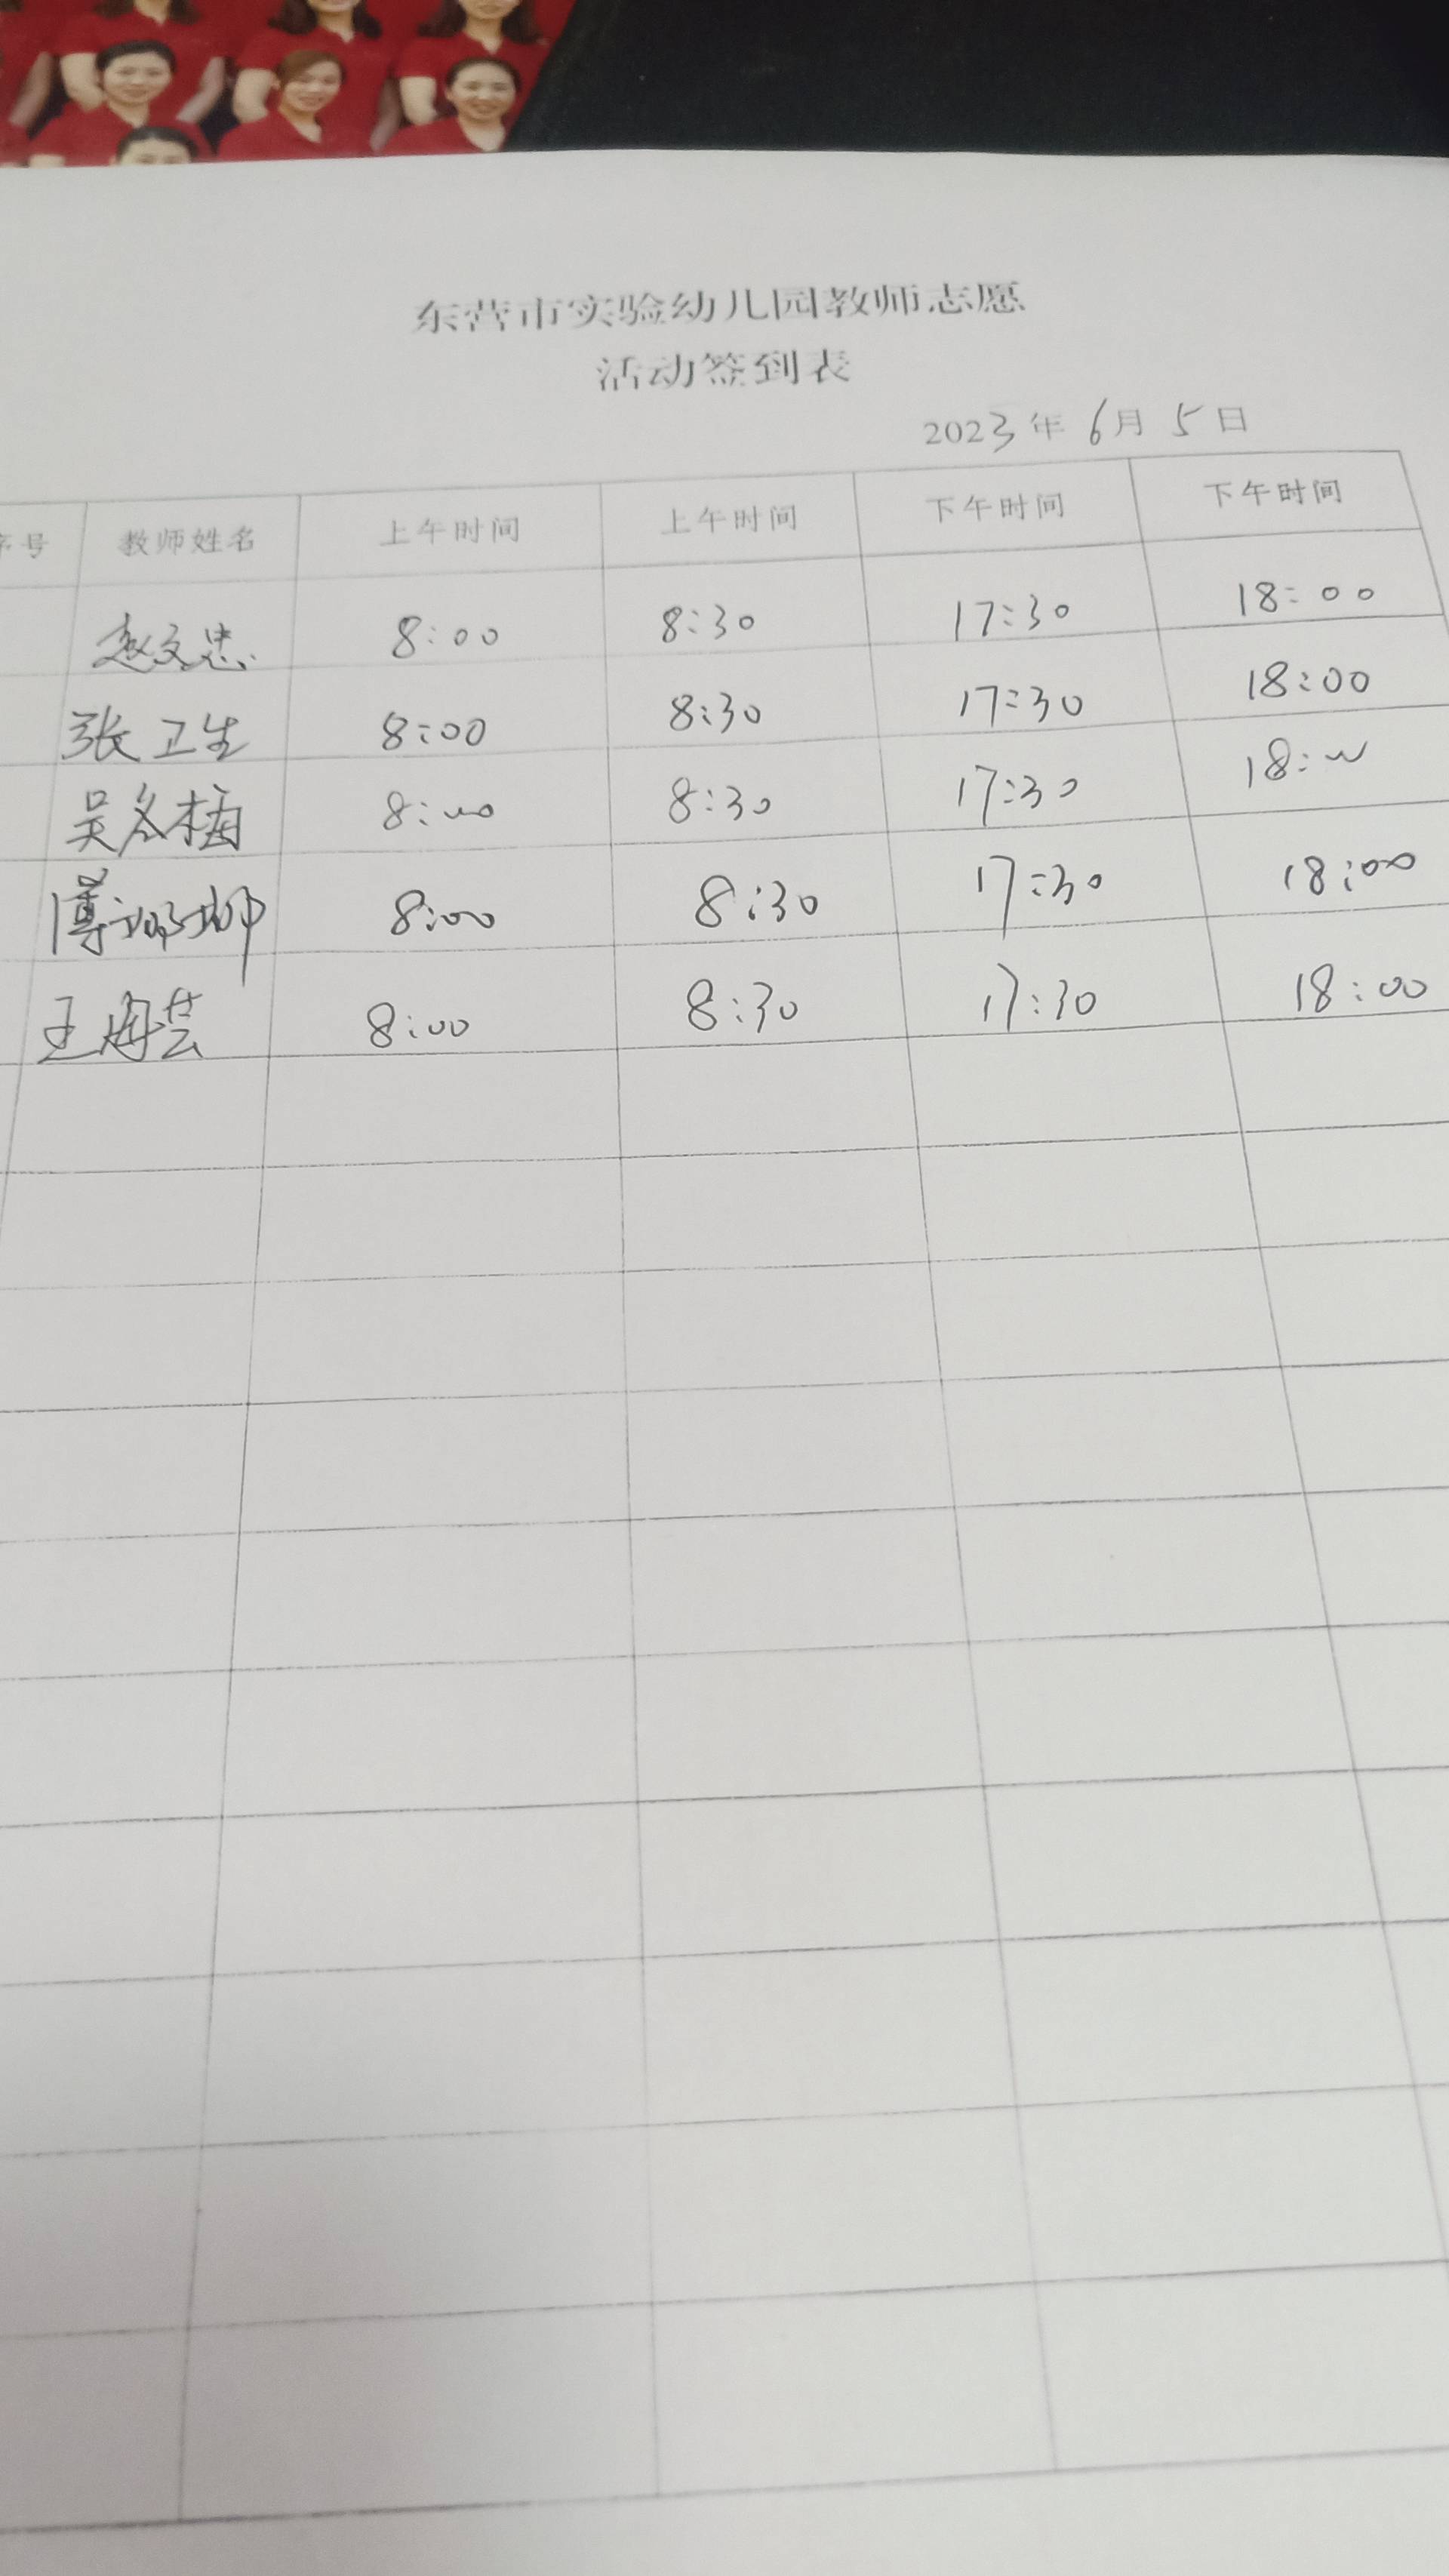 东营市实验幼儿园教师志愿
活动签到表
2023年6月5日
序号 教师姓名 上午时间 上午时间 下午时间 下午时间
赵文忠 8:00 8:30 17:30 18:00
张卫生 8:00 8:30 17:30 18:00
吴冬梅 8:00 8:30 17:30 18:00
8:00 8:30 17:30 18:00
王海芸 8:00 8:30 17:30 18:00